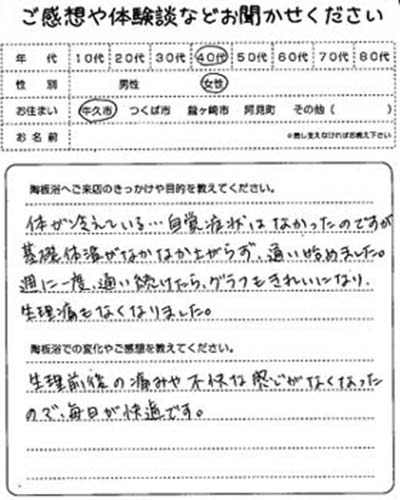 ご感想や体験談などお聞かせください
年　代　10代　20代　30代　40代　50代　60代　70代　80代
性　別　男性　女性
お住まい　牛久市　つくば市　龍ヶ崎市　阿見町　その他（　　　）
お名前　※差し支えなければお教え下さい
陶板浴へご来店のきっかけや目的を教えてください。
体が冷えている…自覚症状はなかったのですが
基礎体温がなかなか上がらず、通い始めました。
週に一度、通い続けたら、グラフもきれいになり、
生理痛もなくなりました。
陶板浴での変化やご感想を教えてください。
生理前後の痛みや不快な感じがなくなった
ので、毎日が快適です。